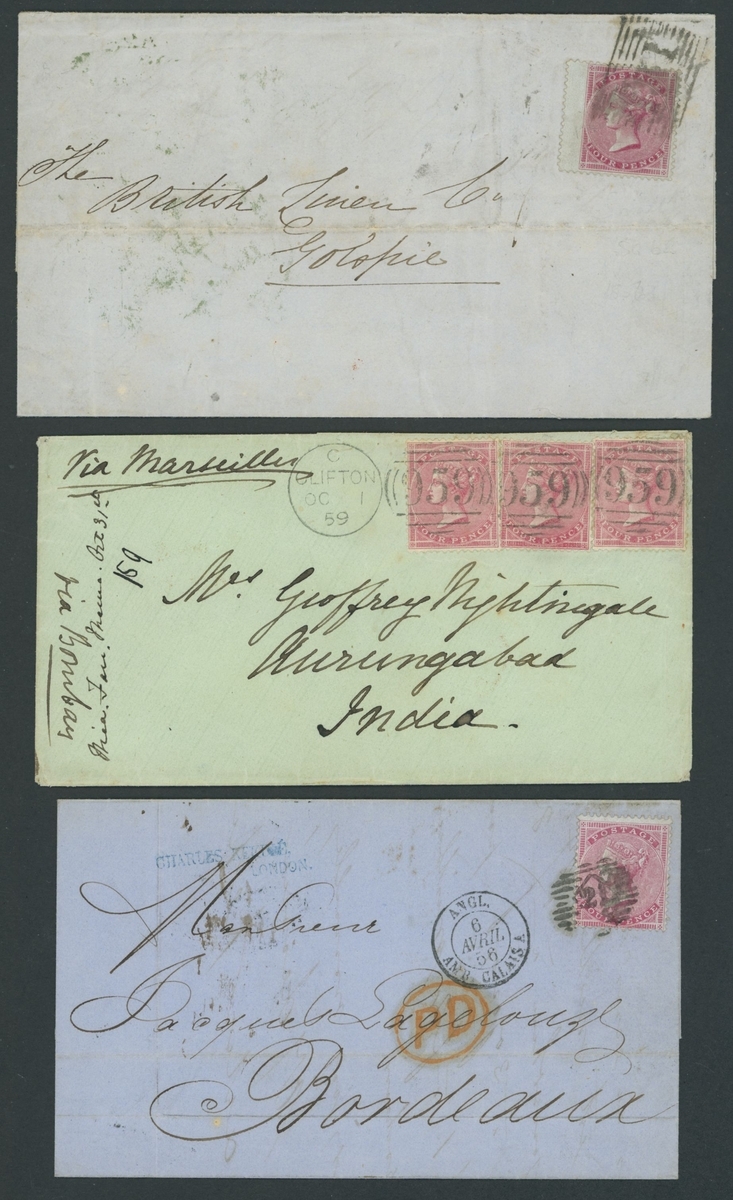 POSTAGE
FOUR PENCE
The
British Linen Co
Golspie
Via Marseilles
C
CLIFTON
OC 1
59
959 959 959
FOUR PENCE FOUR PENCE FOUR PENCE
via Bombay
159
Mrs Geoffrey Nightingale
Aurungabad
India.
CHARLES
LONDON.
POSTAGE
FOUR PENCE
Monsieur
ANGL.
6
AVRIL
56
AMB. CALAIS A
PD
Jacques
Bordeaux